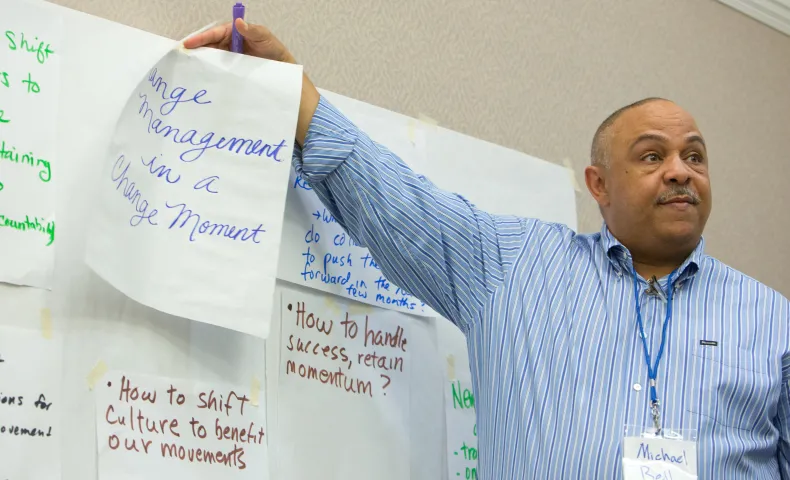 shift
s to
taining
countability
ange
management
in a
Change Moment
do
to push the
forward in the
few months?
• How to handle
success, retain
momentum?
• How to shift
Culture to benefit
our movements
ons for
ovement
Ne
Michael
Bell